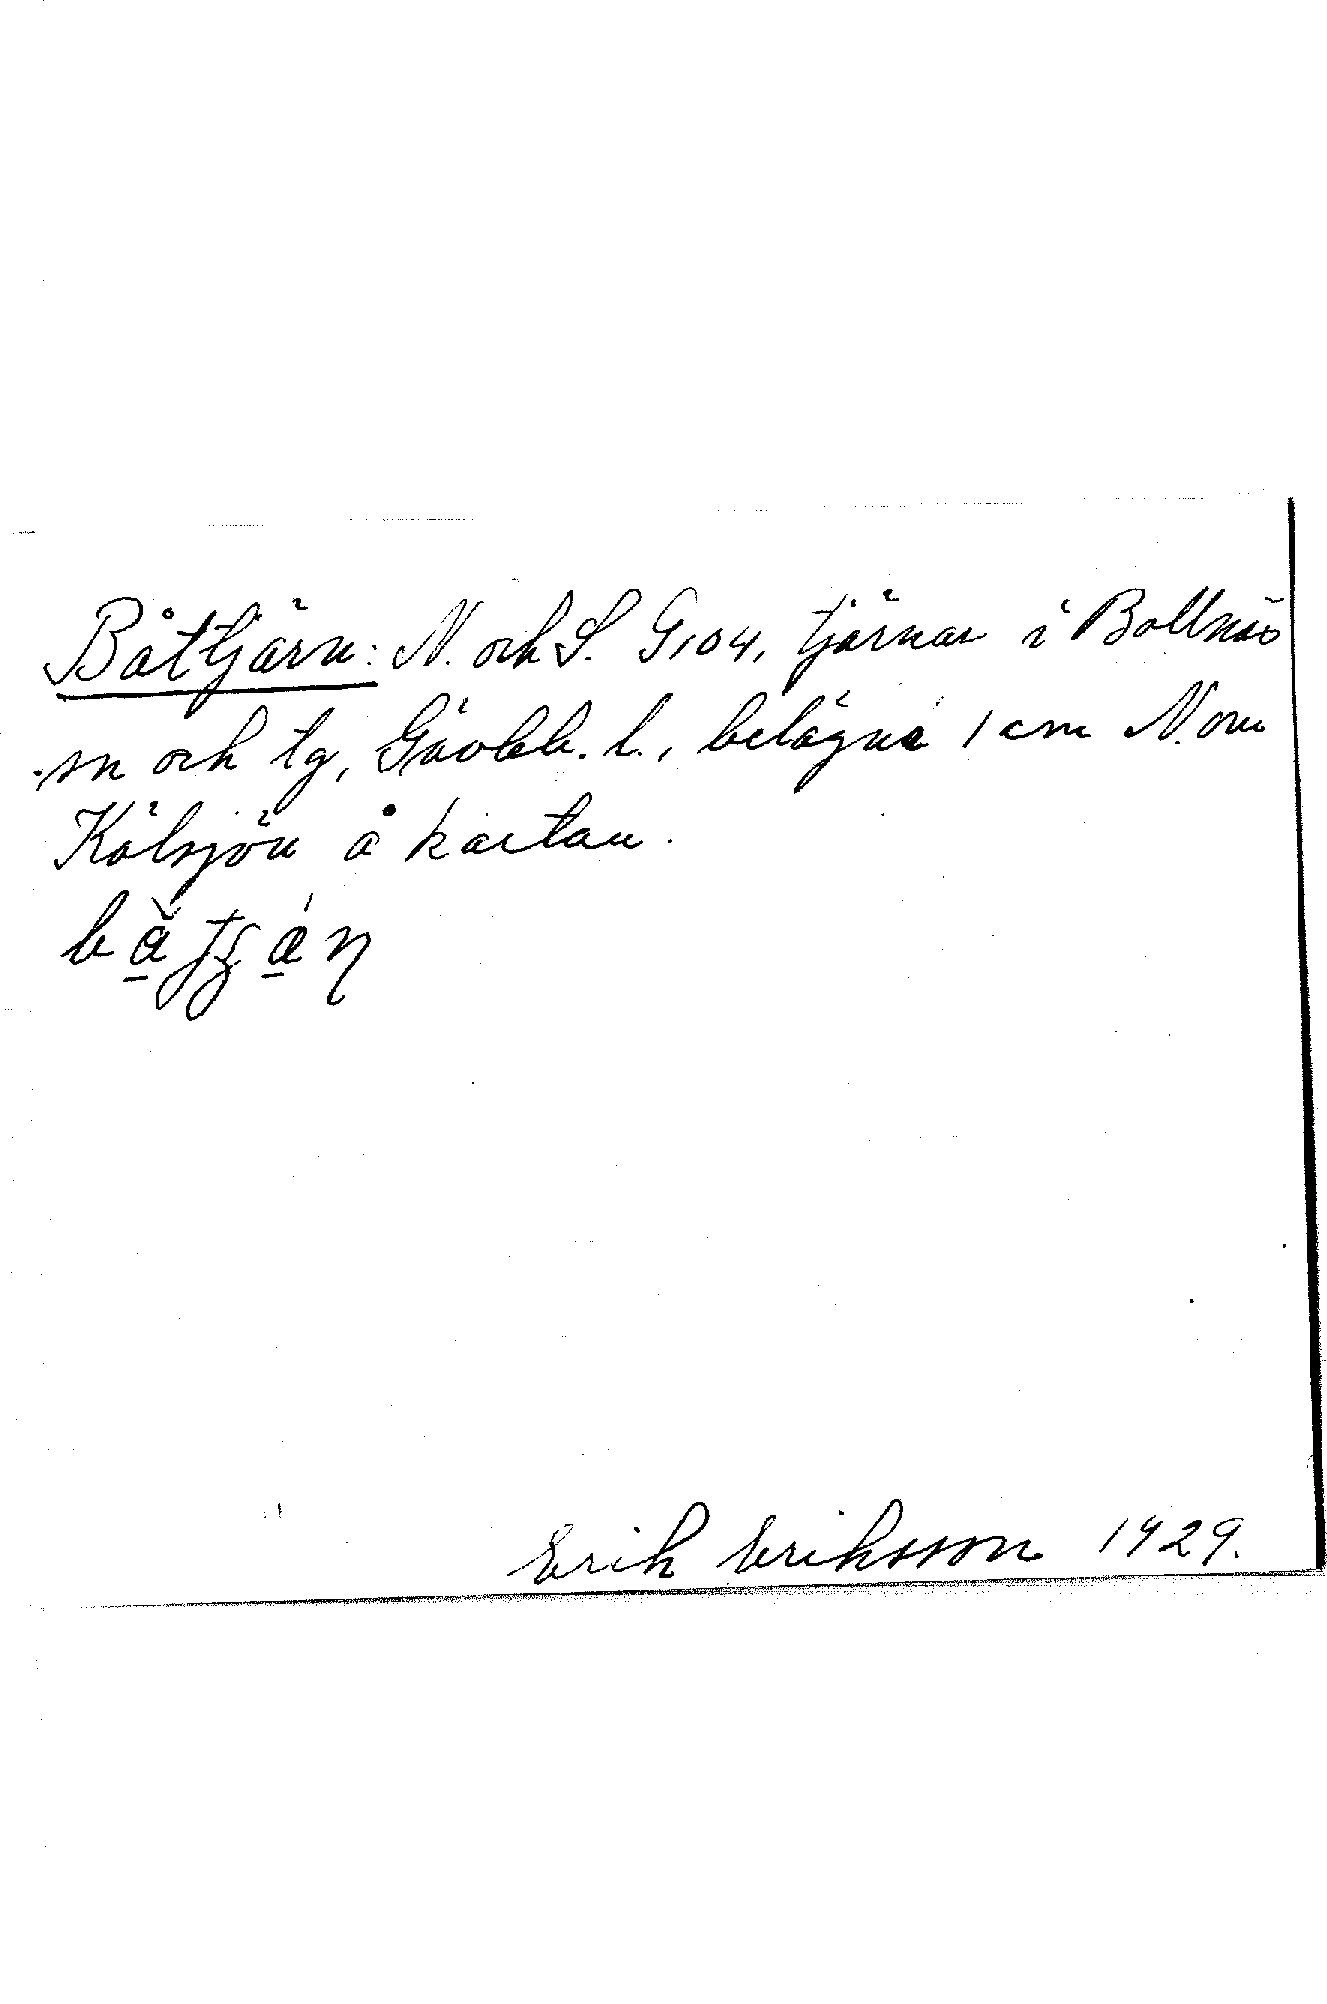 Båttjärn: N. och S. G104, tjärnar i Bollnäs
sn och tg, Gävleb. l., belägna 1 cm N. om
Kölsjön å kartan.
Erik Eriksson 1929.